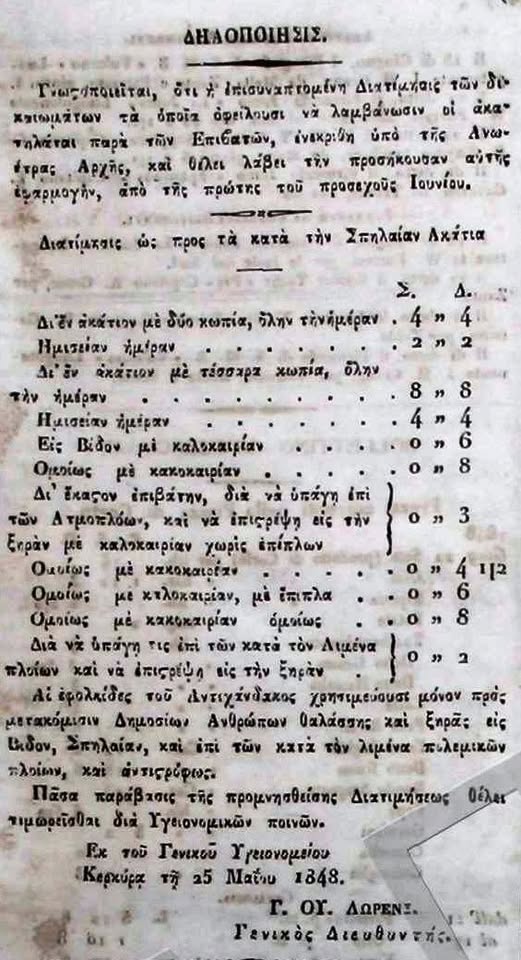 ΔΗΛΟΠΟΙΗΣΙΣ.
Γνωστοποιεῖται, ὅτι ἡ ἐπισυναπτομένη Διατίμησις τῶν δι-
καιωμάτων τὰ ὁποῖα ὀφείλουσι νὰ λαμβάνωσιν οἱ ἀκα-
τηλάται παρὰ τῶν Ἐπιβατῶν, ἐνεκρίθη ὑπὸ τῆς Ἀνω-
τέρας Ἀρχῆς, καὶ θέλει λάβει τὴν προσήκουσαν αὐτῆς
ἐφαρμογήν, ἀπὸ τῆς πρώτης τοῦ προσεχοῦς Ἰουνίου.
Διατίμησις ὡς πρὸς τὰ κατὰ τὴν Σπηλαίαν Ἀκάτια
Σ. Δ.
Δι' ἓν ἀκάτιον μὲ δύο κωπία, ὅλην τὴν ἡμέραν . 4 „ 4
Ἡμισείαν ἡμέραν . . . . . . . 2 „ 2
Δι' ἓν ἀκάτιον μὲ τέσσαρα κωπία, ὅλην
τὴν ἡμέραν . . . . . . . . . 8 „ 8
Ἡμισείαν ἡμέραν . . . . . . . 4 „ 4
Εἰς Βίδον μὲ καλοκαιρίαν . . . . 0 „ 6
Ὁμοίως μὲ κακοκαιρίαν . . . . . 0 „ 8
Δι' ἕκαστον ἐπιβάτην, διὰ νὰ ὑπάγῃ ἐπὶ
τῶν Ἀτμοπλόων, καὶ νὰ ἐπιστρέψῃ εἰς τὴν 0 „ 3
ξηρὰν μὲ καλοκαιρίαν χωρὶς ἐπίπλων
Ὁμοίως μὲ κακοκαιρίαν . . . . . 0 „ 4 1|2
Ὁμοίως μὲ καλοκαιρίαν, μὲ ἔπιπλα . . 0 „ 6
Ὁμοίως μὲ κακοκαιρίαν ὁμοίως . . . 0 „ 8
Διὰ νὰ ὑπάγῃ τις ἐπὶ τῶν κατὰ τὸν Λιμένα
πλοίων καὶ νὰ ἐπιστρέψῃ εἰς τὴν ξηρὰν . 0 „ 2
Αἱ ἐφολκίδες τοῦ Ἀντιχάνδακος χρησιμεύουσι μόνον πρὸς
μετακόμισιν Δημοσίων Ἀνθρώπων θαλάσσης καὶ ξηρᾶς εἰς
Βίδον, Σπηλαίαν, καὶ ἐπὶ τῶν κατὰ τὸν λιμένα πολεμικῶν
πλοίων, καὶ ἀντιστρόφως.
Πᾶσα παράβασις τῆς προμνησθείσης Διατιμήσεως θέλει
τιμωρεῖσθαι διὰ Ὑγειονομικῶν ποινῶν.
Ἐκ τοῦ Γενικοῦ Ὑγειονομείου
Κερκύρα τῇ 25 Μαΐου 1848.
Γ. ΟΥ. ΛΩΡΕΝΣ.
Γενικὸς Διευθυντής.